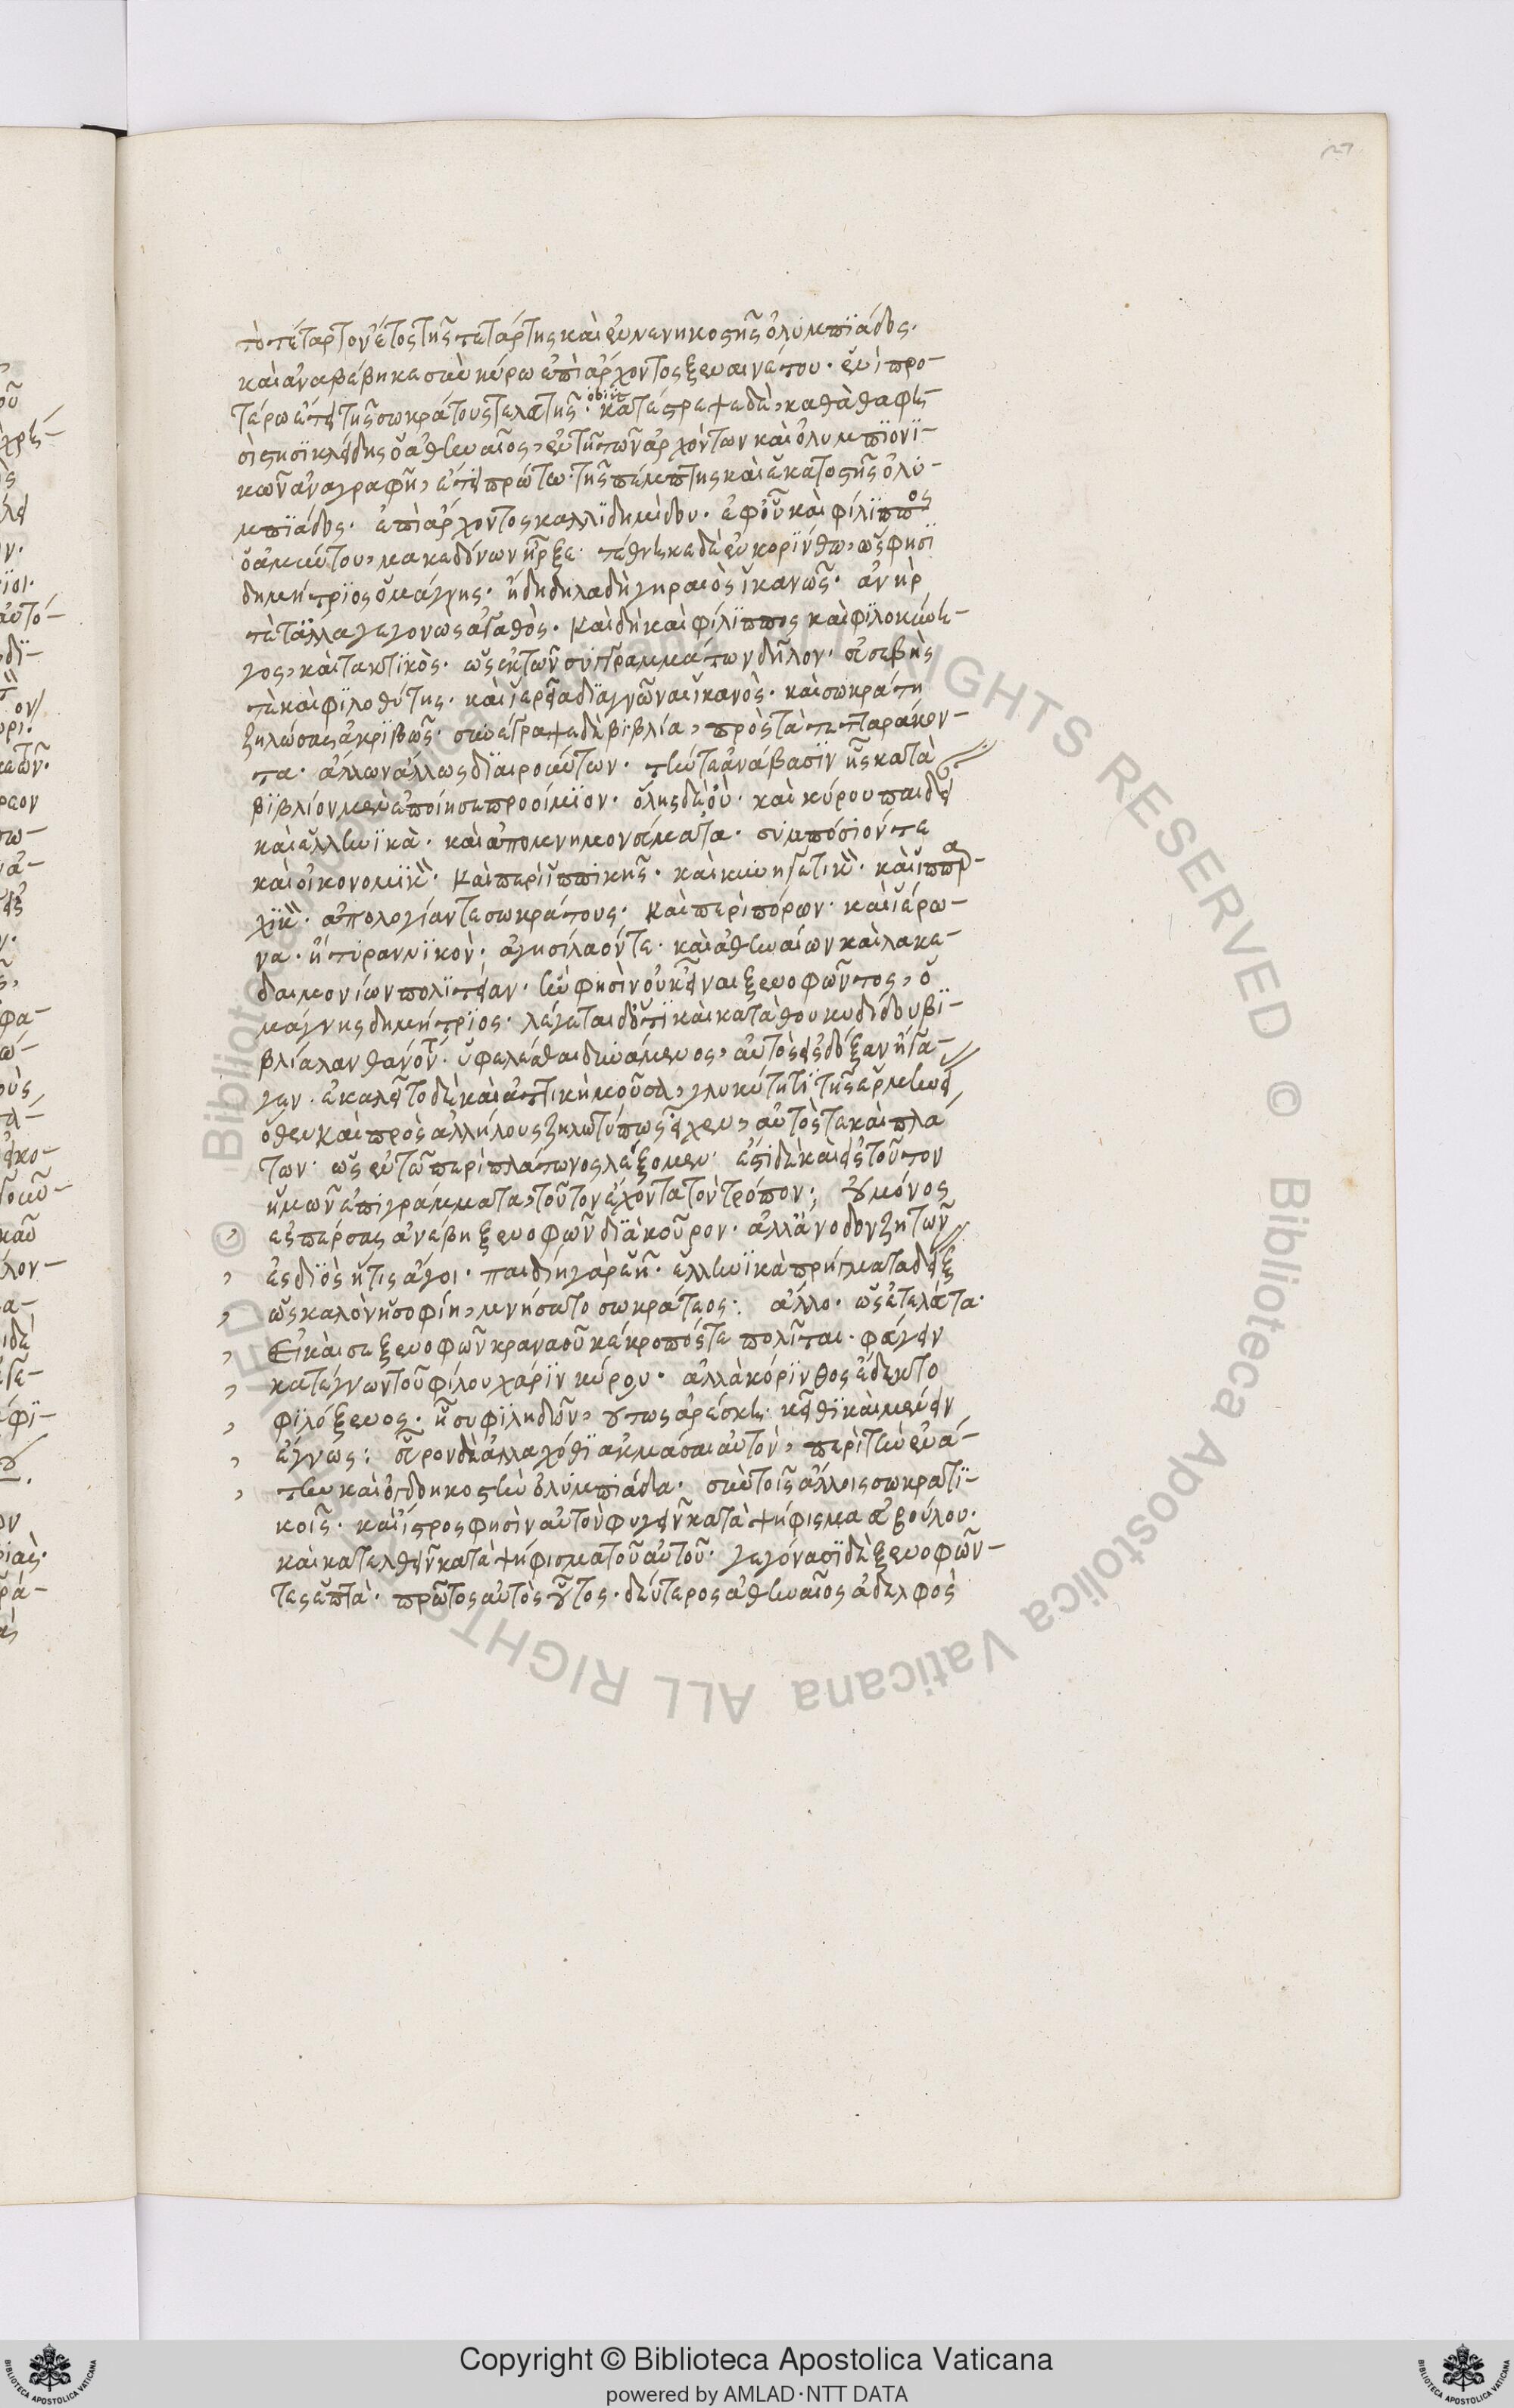 τὸ τέταρτον ἔτος τῆς τετάρτης καὶ ἐνενηκοστῆς ὀλυμπϊάδος·
καὶ ἀναβέβηκε σὺν κύρω ἐπὶ ἄρχοντος ξεναινέτου· ἑνὶ προ-
τέρω ἔτει τῆς σωκράτους τελετῆς· κατέστρεψε δὲ, καθὰ φη-
σὶ στησϊκλείδης ὁ ἀθηναῖος, ἐν τῆ τῶν ἀρχόντων καὶ ὀλυμπϊονϊ-
κῶν ἀναγραφῆ, ἔτει πρώτω τῆς πέμπτης καὶ ἑκατοστῆς ὀλυ-
μπϊάδος· ἐπὶ ἄρχοντος καλλϊδημίδου· ἐφ' οὗ καὶ φίλϊππος
ὁ ἀμύντου, μακεδόνων ἦρξε· τέθνηκε δὲ ἐν κορίνθω, ὥς φησϊ
δημήτρϊος ὁ μάγνης· ἤδη δηλαδὴ γηραιὸς ἱκανῶς· ἀνὴρ
τὲ τἄλλα γεγονὼς ἀγαθὸς· καὶ δὴ καὶ φίλϊππος καὶ φϊλοκύνη-
γος, καὶ τακτϊκὸς· ὡς ἐκ τῶν συγγραμμάτων δῆλον· εὐσεβὴς
τὲ καὶ φϊλοθύτης· καὶ ἱερεῖα δϊαγνῶναι ἱκανὸς· καὶ σωκράτη
ζηλώσας ἀκρϊβῶς· συνέγραψε δὲ βϊβλία, πρὸς τὰ τετταράκον-
τα· ἄλλων ἄλλως δϊαιρούντων· τήν τε ἀνάβασϊν ἧς κατὰ
βϊβλίον μὲν ἐποίησε προοίμϊον· ὅλης δὲ οὔ· καὶ κύρου παιδεί
καὶ ἑλληνϊκὰ· καὶ ἀπομνημονεύματα· συμπόσϊόν τε
καὶ οἰκονομϊκ· καὶ περὶ ἱππικῆς· καὶ κυνηγετικ· καὶ ἱππαρ-
χϊκ· ἀπολογίαν τε σωκράτους· καὶ περὶ πόρων· καὶ ἱέρω-
να· ἢ τυραννϊκὸν· ἀγησίλαόν τε· καὶ ἀθηναίων καὶ λακε-
δαιμονίων πολϊτείαν· ἥν φησὶν οὐκ εἶναι ξενοφῶντος, ὁ
μάγνης δημήτρϊος· λέγεται δ' ὅτϊ καὶ κατὰ θουκυδίδου βϊ-
βλία λανθάνοντ· ὑφελέσθαι δυνάμενος, αὐτὸς εἰς δόξαν ἤγα-
γεν· ἐκαλεῖτο δὲ καὶ ἀττικὴ μοῦσα, γλυκύτητϊ τῆς ἑρμηνεί
ὅθεν καὶ πρὸς ἀλλήλους ζηλοτύπως εἶχεν, αὐτός τε καὶ πλά
των· ὡς ἐν τῶ περὶ πλάτωνος λέξομεν· ἔστι δὲ καὶ εἰς τοῦτον
ἡμῶν ἐπιγράμματα, τοῦτον ἔχοντα τὸν τρόπον· οὐ μόνος
ἐς πέρσας ἀνέβη ξενοφῶν δϊὰ κοῦρον· ἀλλ' ἄνοδον ζητῶν
ἐς δϊὸς ἥτις ἄγοι· παιδείη γὰρ ἑῆ· ἑλληνϊκὰ πρήγματα δείξ
ὡς καλὸν ἡ σοφίη, μνήσατο σωκράτεος· ἄλλο· ὡς ἐτελεύτα·
Εἰ καὶ σε ξενοφῶν κραναοῦ κέκροπός τε πολῖται· φεύγειν
κατέγνων τοῦ φίλου χάρϊν κύρου· ἀλλὰ κόρϊνθος ἔδεκτο
φϊλόξενος· ᾗ σὺ φϊληδῶν, οὕτως ἀρέσκη· κεῖθϊ καὶ μένειν
ἔγνως· εὗρον δὲ ἀλλαχόθϊ ἀκμάσαι αὐτὸν, περὶ τὴν ἐνά-
την καὶ ὀγδοηκοστὴν ὀλυμπιάδα· σὺν τοῖς ἄλλοις σωκρατϊ-
κοῖς· καὶ ἴστρος φησὶν αὐτὸν φυγεῖν κατὰ ψήφισμα εὐβούλου·
καὶ κατελθεῖν κατὰ ψήφισμα τοῦ αὐτοῦ· γεγόνασϊ δὲ ξενοφῶν-
τες ἑπτὰ· πρῶτος αὐτὸς οὗτος· δεύτερος ἀθηναῖος ἀδελφὸς
Copyright © Biblioteca Apostolica Vaticana
powered by AMLAD·NTT DATA